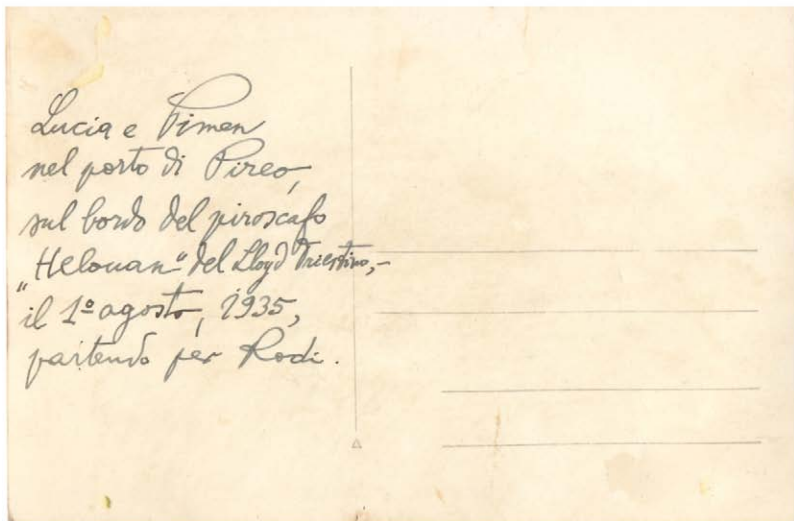 Lucia e Pimen
nel porto di Pireo,
sul bordo del piroscafo
„Helouan“ del Lloyd Triestino,-
il 1º agosto, 1935,
partendo per Rodi.